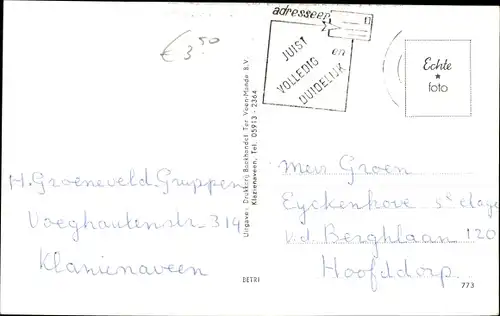 € 3,50
adresseer
JUIST
VOLLEDIG
en
DUIDELIJK
Echte
*
foto
H. Groeneveld. Gruppen
Voeghoutenstr. 314
Klazienaveen
Uitgave: Drukkerij Boekhandel Ter Veen-Mande B.V.
Klazienaveen, Tel. 05913 - 2364
Mevr Groen
Eyckenhove 5e etage
v.d. Berghlaan 120
Hoofddorp.
BETRI
773